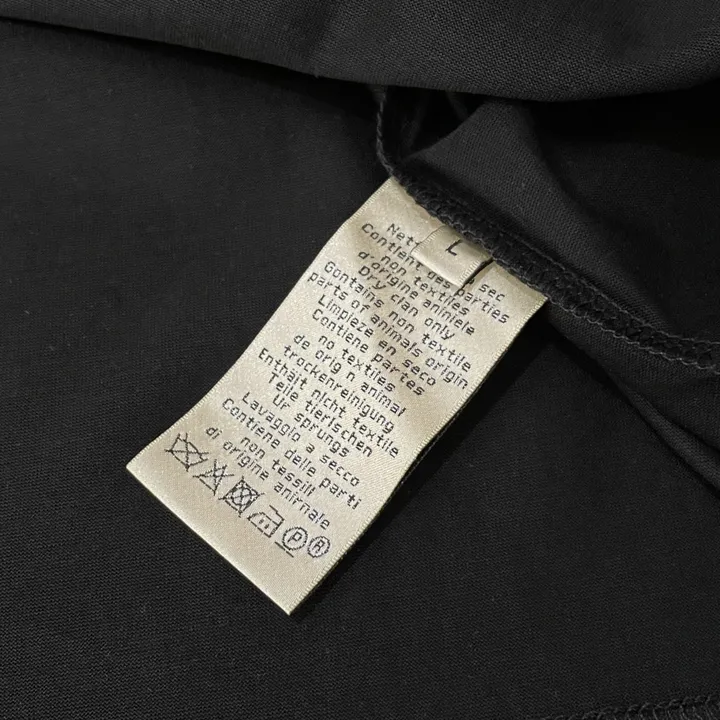 Nett
L
sec
Contient des parties
non textiles
d'origine aniniele
Dry clan only
Gontains non textile
parts of animals origin
Limpieze en seco
Contiene partes
no textiles
de orig n animal
trockenreinigung
Enthält nicht textile
Teile tierischen
Ur sprungs
Lavaggio a secco
Contiene delle parti
non tessili
di origine anirnale
P R